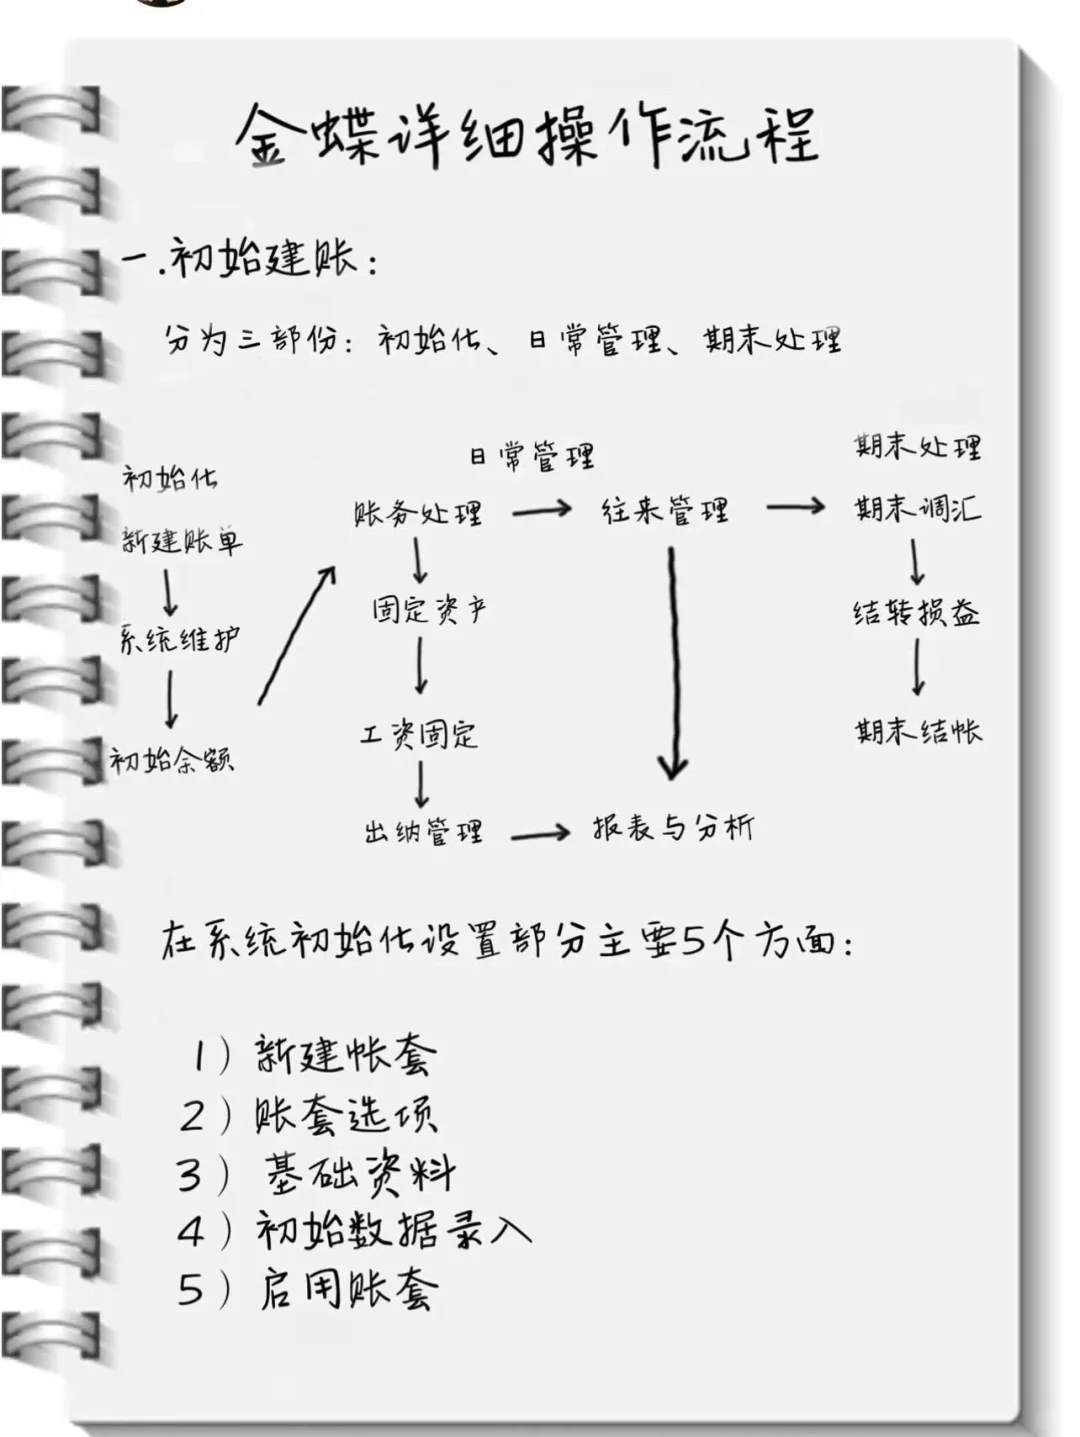 金蝶详细操作流程
一.初始建账:
分为三部份: 初始化、日常管理、期末处理
初始化
新建账单
系统维护
初始余额
日常管理
账务处理 → 往来管理 →
固定资产
工资固定
出纳管理 → 报表与分析
期末处理
期末调汇
结转损益
期末结帐
在系统初始化设置部分主要5个方面:
1) 新建帐套
2) 账套选项
3) 基础资料
4) 初始数据录入
5) 启用账套